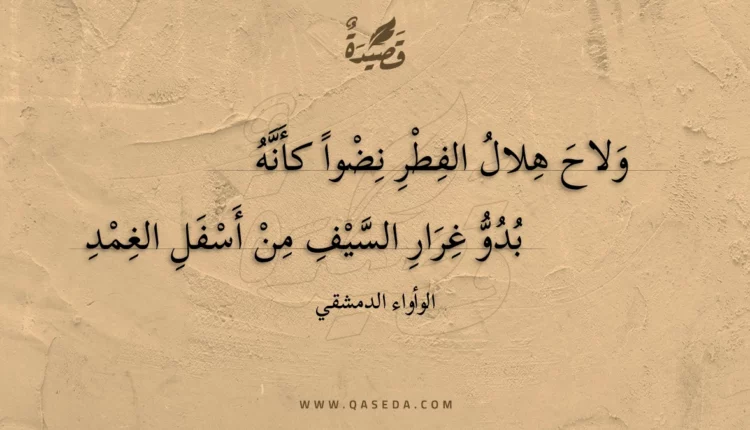 قَصِيدَةٌ
وَلاحَ هِلالُ الفِطْرِ نِضْواً كأَنَّهُ
بُدُوُّ غِرَارِ السَّيْفِ مِنْ أَسْفَلِ الغِمْدِ
الوأواء الدمشقي
WWW.QASEDA.COM